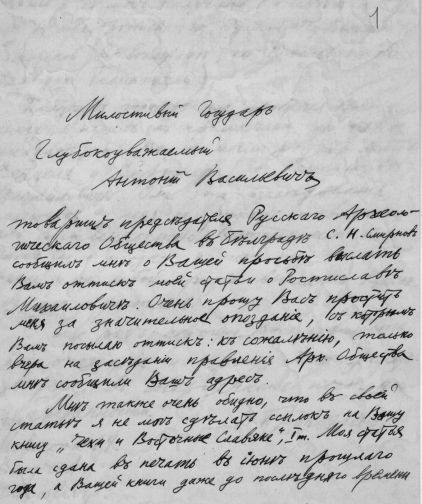 1
Милостивый Государь
Глубокоуважаемый
Антоній Васильевичъ,
товарищъ предсѣдателя Русскаго Археоло-
гическаго Общества въ Бѣлградѣ С. Н. Смирновъ
сообщилъ мнѣ о Вашей просьбѣ выслать
Вамъ оттискъ моей статьи о Ростиславѣ
Михаиловичѣ. Очень прошу Васъ простить
меня за значительное опозданіе, съ которымъ
Вамъ посылаю оттискъ: къ сожалѣнію, только
вчера на засѣданіи правленія Арх. Общества
мнѣ сообщили Вашъ адресъ.
Мнѣ также очень обидно, что въ своей
статьѣ я не могъ сдѣлать ссылокъ на Вашу
книгу „Чехи и Восточные Славяне, I т. Моя статья
была сдана въ печать въ іюнѣ прошлаго
года, а Вашей книги даже до послѣдняго времени